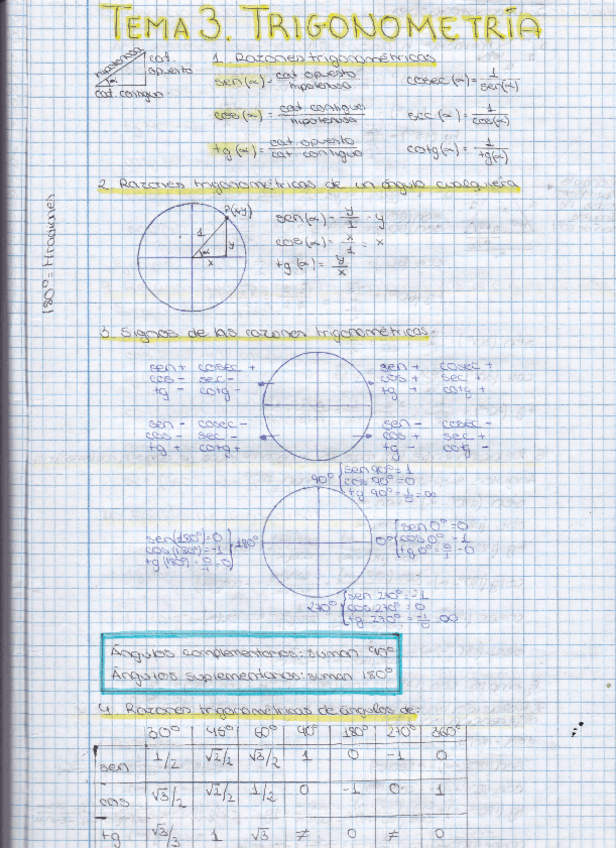 TEMA 3. TRIGONOMETRÍA
hipotenusa
cat. opuesto
α
cat. contiguo
1. Razones trigonométricas
sen(α) = cat. opuesto / hipotenusa
cosec(α) = 1 / sen(α)
cos(α) = cat. contiguo / hipotenusa
sec(α) = 1 / cos(α)
tg(α) = cat. opuesto / cat. contiguo
cotg(α) = 1 / tg(α)
2. Razones trigonométricas de un ángulo cualquiera
180° = π radianes
P(x,y)
1
y
α
x
sen(α) = y/1 = y
cos(α) = x/1 = x
tg(α) = y/x
3. Signos de las razones trigonométricas.
sen + cosec +
cos - sec -
tg - cotg -
sen + cosec +
cos + sec +
tg + cotg +
sen - cosec -
cos - sec -
tg + cotg +
sen - cosec -
cos + sec +
tg - cotg -
90°
sen 90° = 1
cos 90° = 0
tg 90° = 1/0 = ∞
sen(180°) = 0
cos(180°) = -1
tg(180°) = 0
180°
0°
sen 0° = 0
cos 0° = 1
tg 0° = 0/1 = 0
270°
sen 270° = -1
cos 270° = 0
tg 270° = -1/0 = ∞
Ángulos complementarios: suman 90°
Ángulos suplementarios: suman 180°
4. Razones trigonométricas de ángulos de:
30° 45° 60° 90° 180° 270° 360°
sen 1/2 √2/2 √3/2 1 0 -1 0
cos √3/2 √2/2 1/2 0 -1 0 1
tg √3/3 1 √3 ≠ 0 ≠ 0